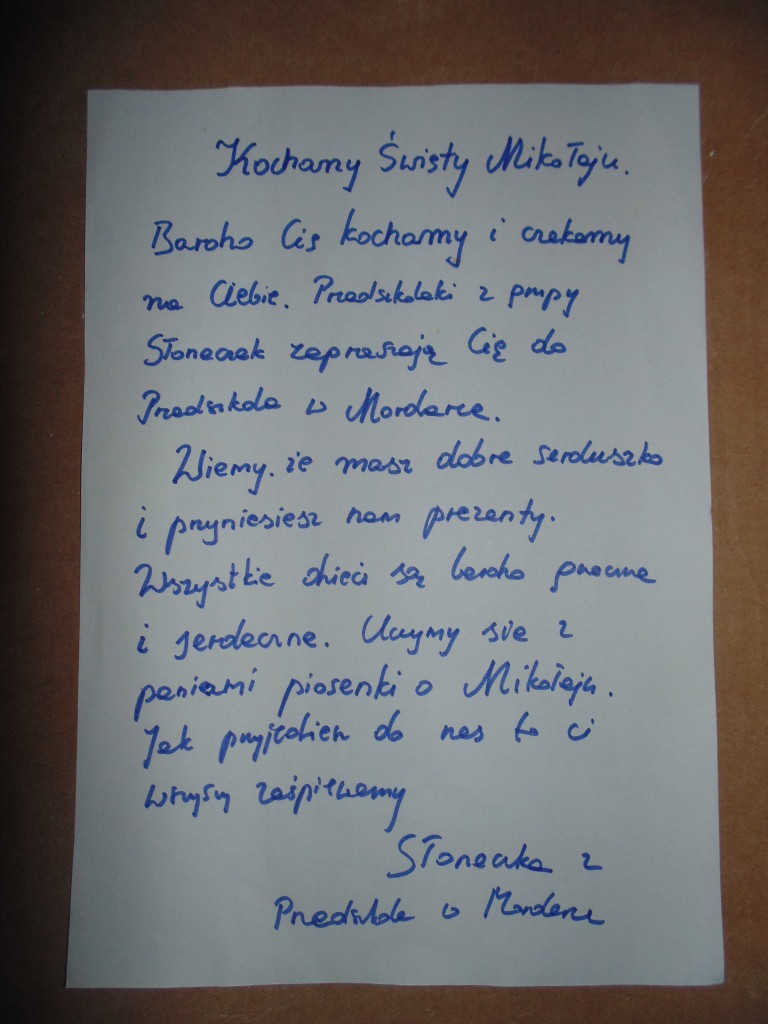 Kochamy Święty Mikołaju.
Bardzo Cię kochamy i czekamy
na Ciebie. Przedszkolaki z grupy
Słoneczek zapraszają Cię do
Przedszkola w Mordarce.
Wiemy. że masz dobre serduszko
i przyniesiesz nam prezenty.
Wszystkie dzieci są bardzo grzeczne
i serdeczne. Uczymy sie z
paniami piosenki o Mikołaju.
Jak przyjedziesz do nas to ci
wszyscy zaśpiewamy
Słoneczka z
Przedszkola w Mordarce